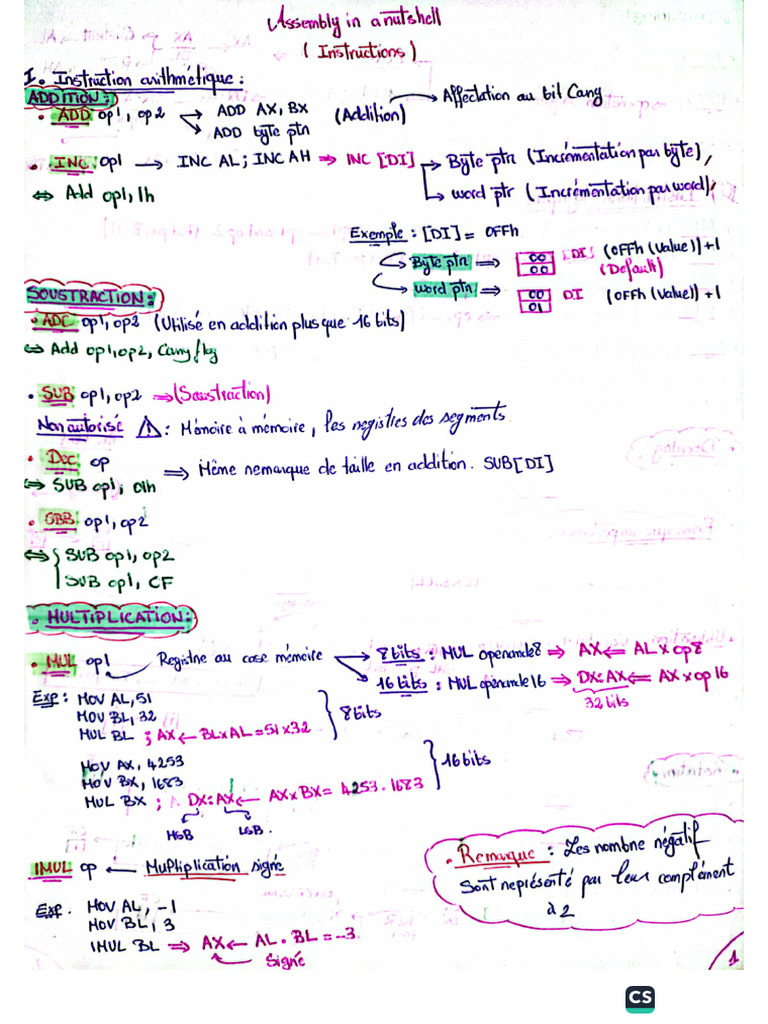 Assembly in a nutshell
( Instructions )
I. Instruction arithmétique :
ADDITION:
• ADD op1, op2 → ADD AX, BX (Addition) → Affectation au bit Carry
→ ADD byte ptr
• INC op1 → INC AL ; INC AH ⇒ INC [DI] → Byte ptr (Incrémentation par byte),
→ word ptr (Incrémentation par word),
⇔ Add op1, 1h
Exemple : [DI] = 0FFh
Byte ptr ⇒ 00 00 DI (0FFh (Value)) +1
(Default)
word ptr ⇒ 00 01 DI (0FFh (Value)) + 1
SOUSTRACTION :
• ADC op1, op2 (Utilisé en addition plus que 16 bits)
⇔ Add op1, op2, Carry flag
• SUB op1, op2 ⇒ (Soustraction)
Non autorisé ⚠ : Mémoire à mémoire, les registres des segments
• Dec op ⇒ Même remarque de taille en addition. SUB [DI]
⇔ SUB op1, 01h
• SBB op1, op2
⇔ { SUB op1, op2
SUB op1, CF
• MULTIPLICATION:
• MUL op1 Registre au case mémoire → 8 bits : MUL opérande8 ⇒ AX ⇐ AL x op8
→ 16 bits : MUL opérande 16 ⇒ DX:AX ⇐ AX x op 16
32 bits
Exp : MOV AL, 51
MOV BL, 32
MUL BL ; AX ← BL x AL = 51 x 32 } 8 bits
MOV AX, 4253
MOV BX, 1683
MUL BX ; DX:AX ← AX x BX = 4253 . 1683 } 16 bits
MSB LSB.
IMUL op ← Multiplication signé
Exp. MOV AL, -1
MOV BL, 3
IMUL BL ⇒ AX ← AL . BL = -3
Signé
• Remarque : Les nombre négatif
sont représenté par leur complément
à 2
1
CS